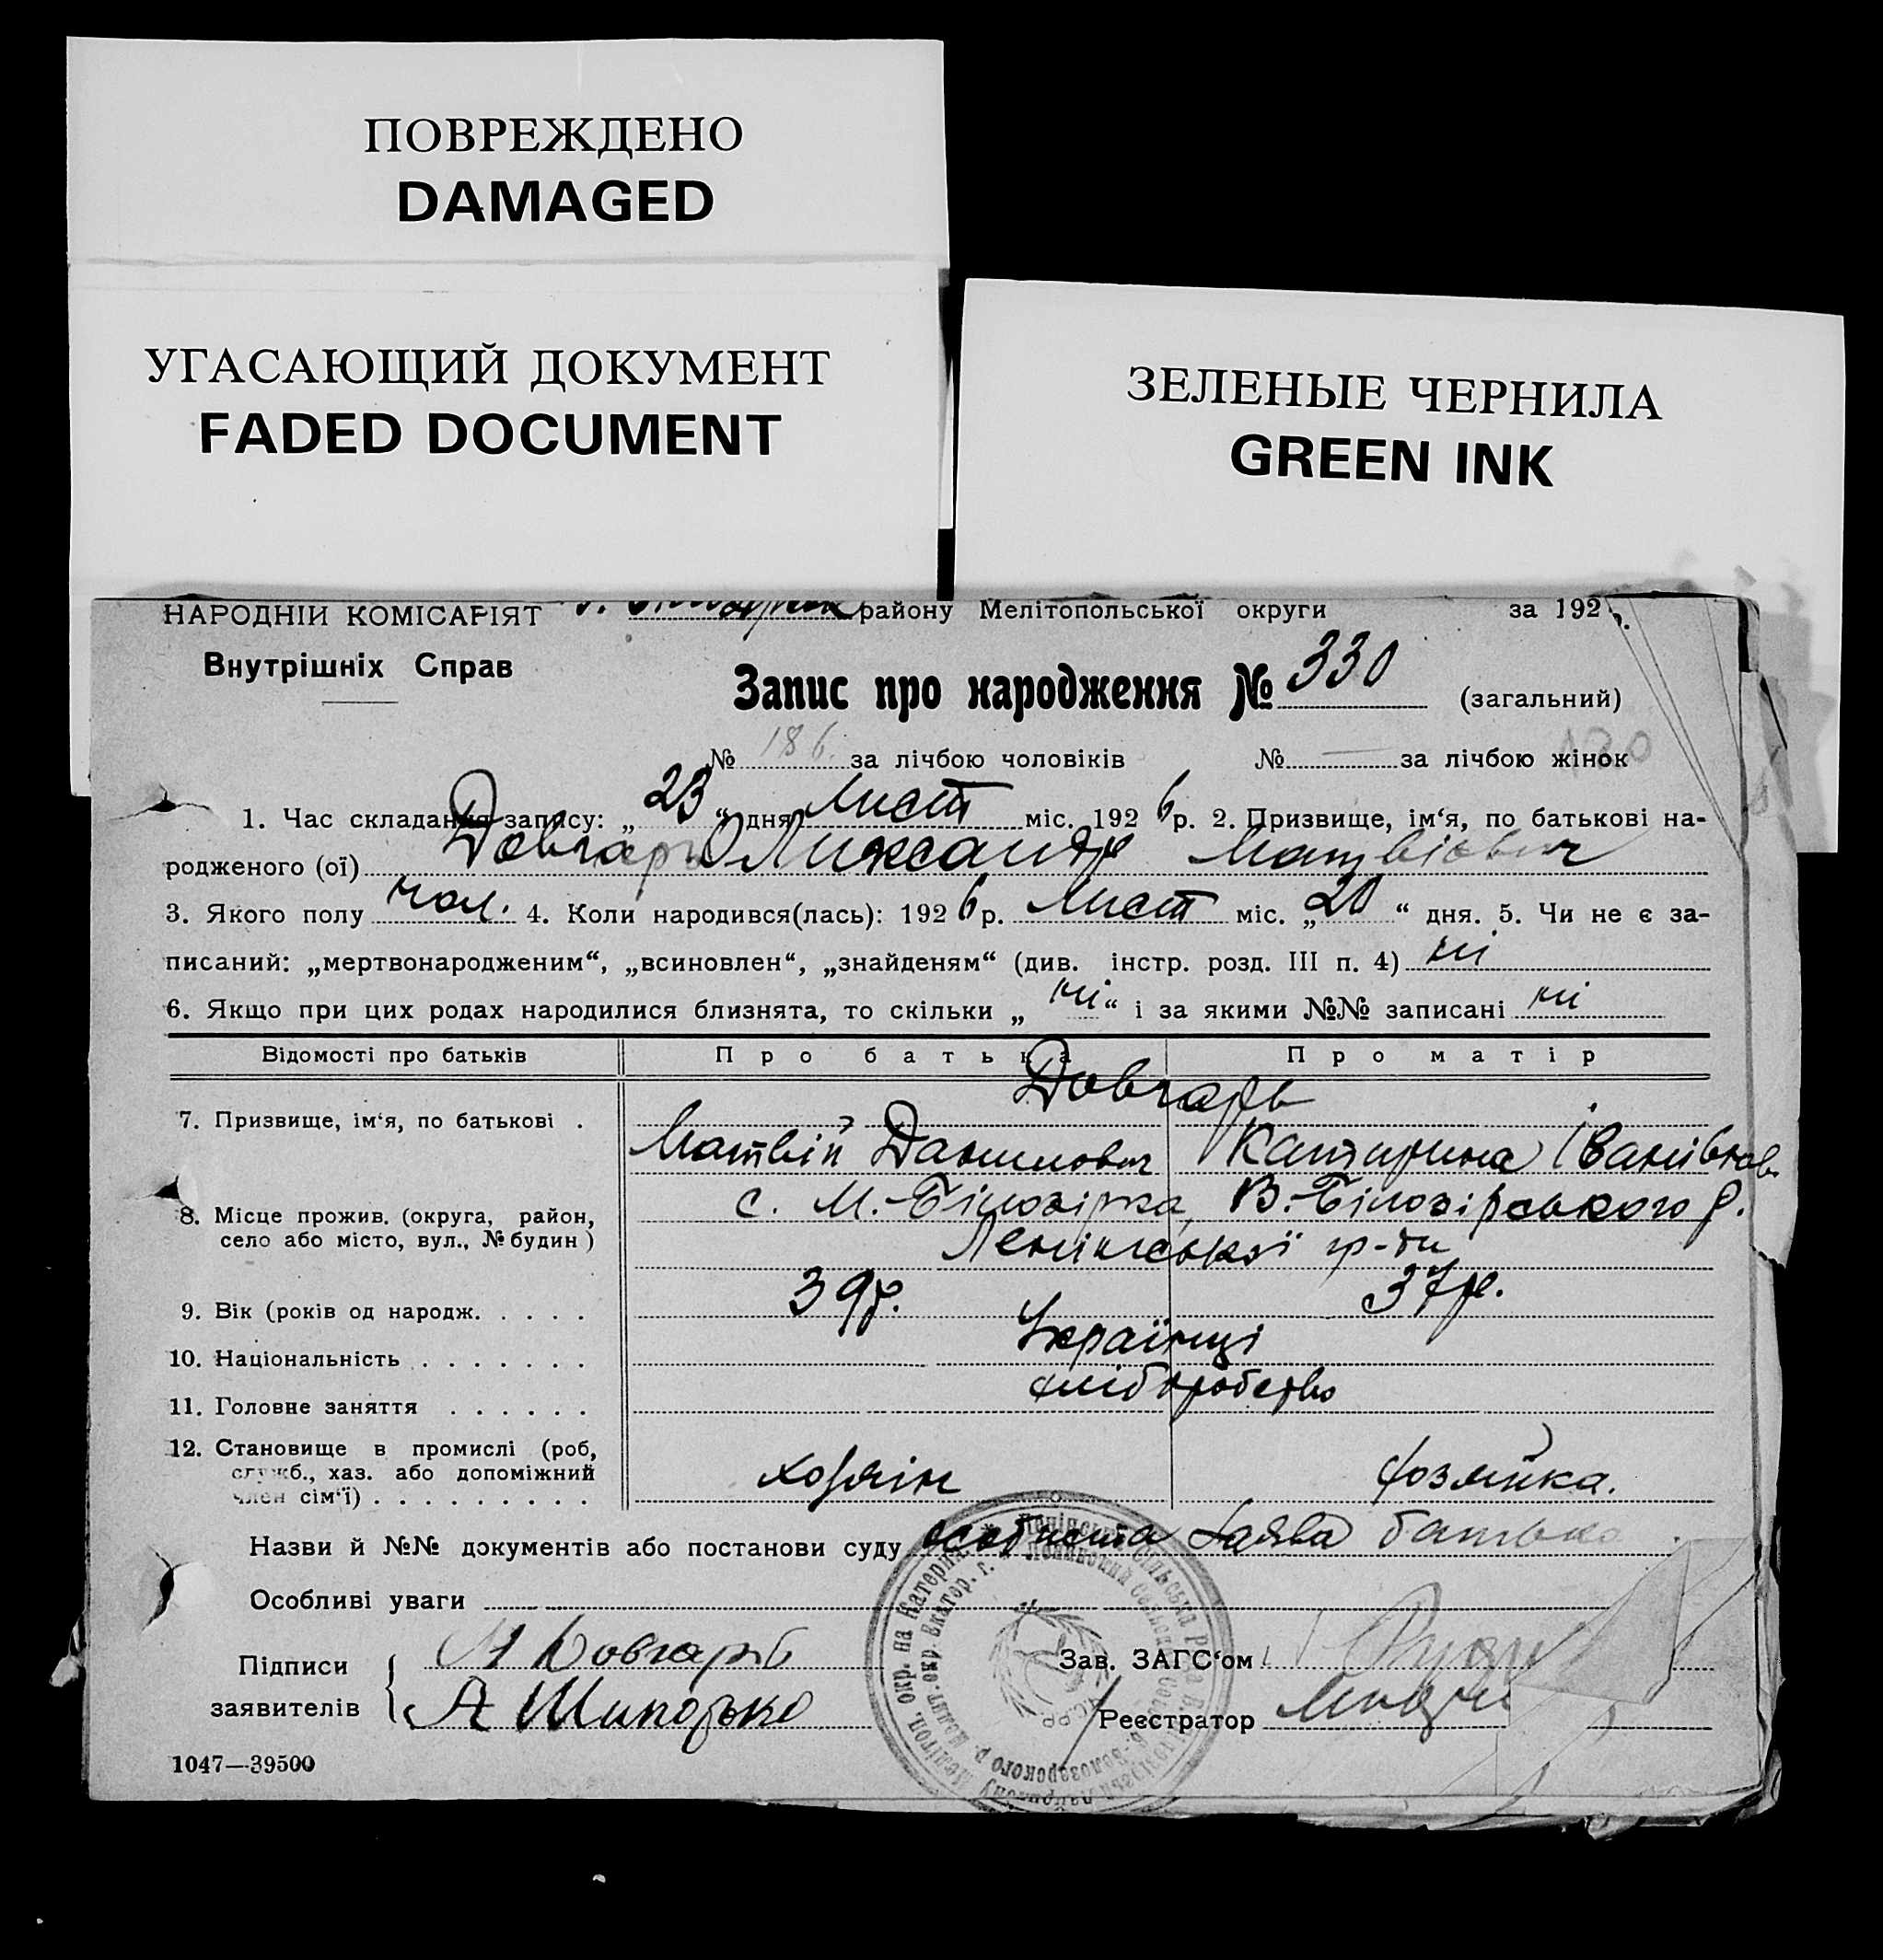 ПОВРЕЖДЕНО
DAMAGED
УГАСАЮЩИЙ ДОКУМЕНТ
FADED DOCUMENT
ЗЕЛЕНЫЕ ЧЕРНИЛА
GREEN INK
НАРОДНІЙ КОМІСАРІЯТ району Мелітопольської округи за 192 р.
Внутрішніх Справ
Запис про народження № 330 (загальний)
№ 186 за лічбою чоловіків № — за лічбою жінок
1. Час складання запису: „23“ дня Лист міс. 1926 р. 2. Призвище, ім‘я, по батькові на-
родженого (ої) Довгарь Олександр Матвієвич
3. Якого полу чол. 4. Коли народився(лась): 1926 р. Лист міс. „20“ дня. 5. Чи не є за-
писаний: „мертвонародженим“, „всиновлен“, „знайденям“ (див. інстр. розд. III п. 4) ні
6. Якщо при цих родах народилися близнята, то скільки „ні“ і за якими №№ записані ні
Відомості про батьків Про батька Про матір
Довгарь
7. Призвище, ім‘я, по батькові .
Матвій Данилович Катерина Іванівнов
8. Місце прожив. (округа, район, село або місто, вул., № будин)
с. М.-Білозірка, В.-Білозірського р.
Ленінської гр-ди
9. Вік (років од народж. . . . . 39р. 37р.
10. Національність . . . . . . . Українці
11. Головне заняття . . . . . . хліборобство
12. Становище в промислі (роб, служб., хаз. або допоміжний член сім‘ї) . . . . . . . . . хозяїн хозяйка.
Назви й №№ документів або постанови суду особиста заява батька
Особливі уваги
Підписи заявителів
М Довгарь
А Шипорько
Зав. ЗАГС‘ом
Реєстратор
1047—39500